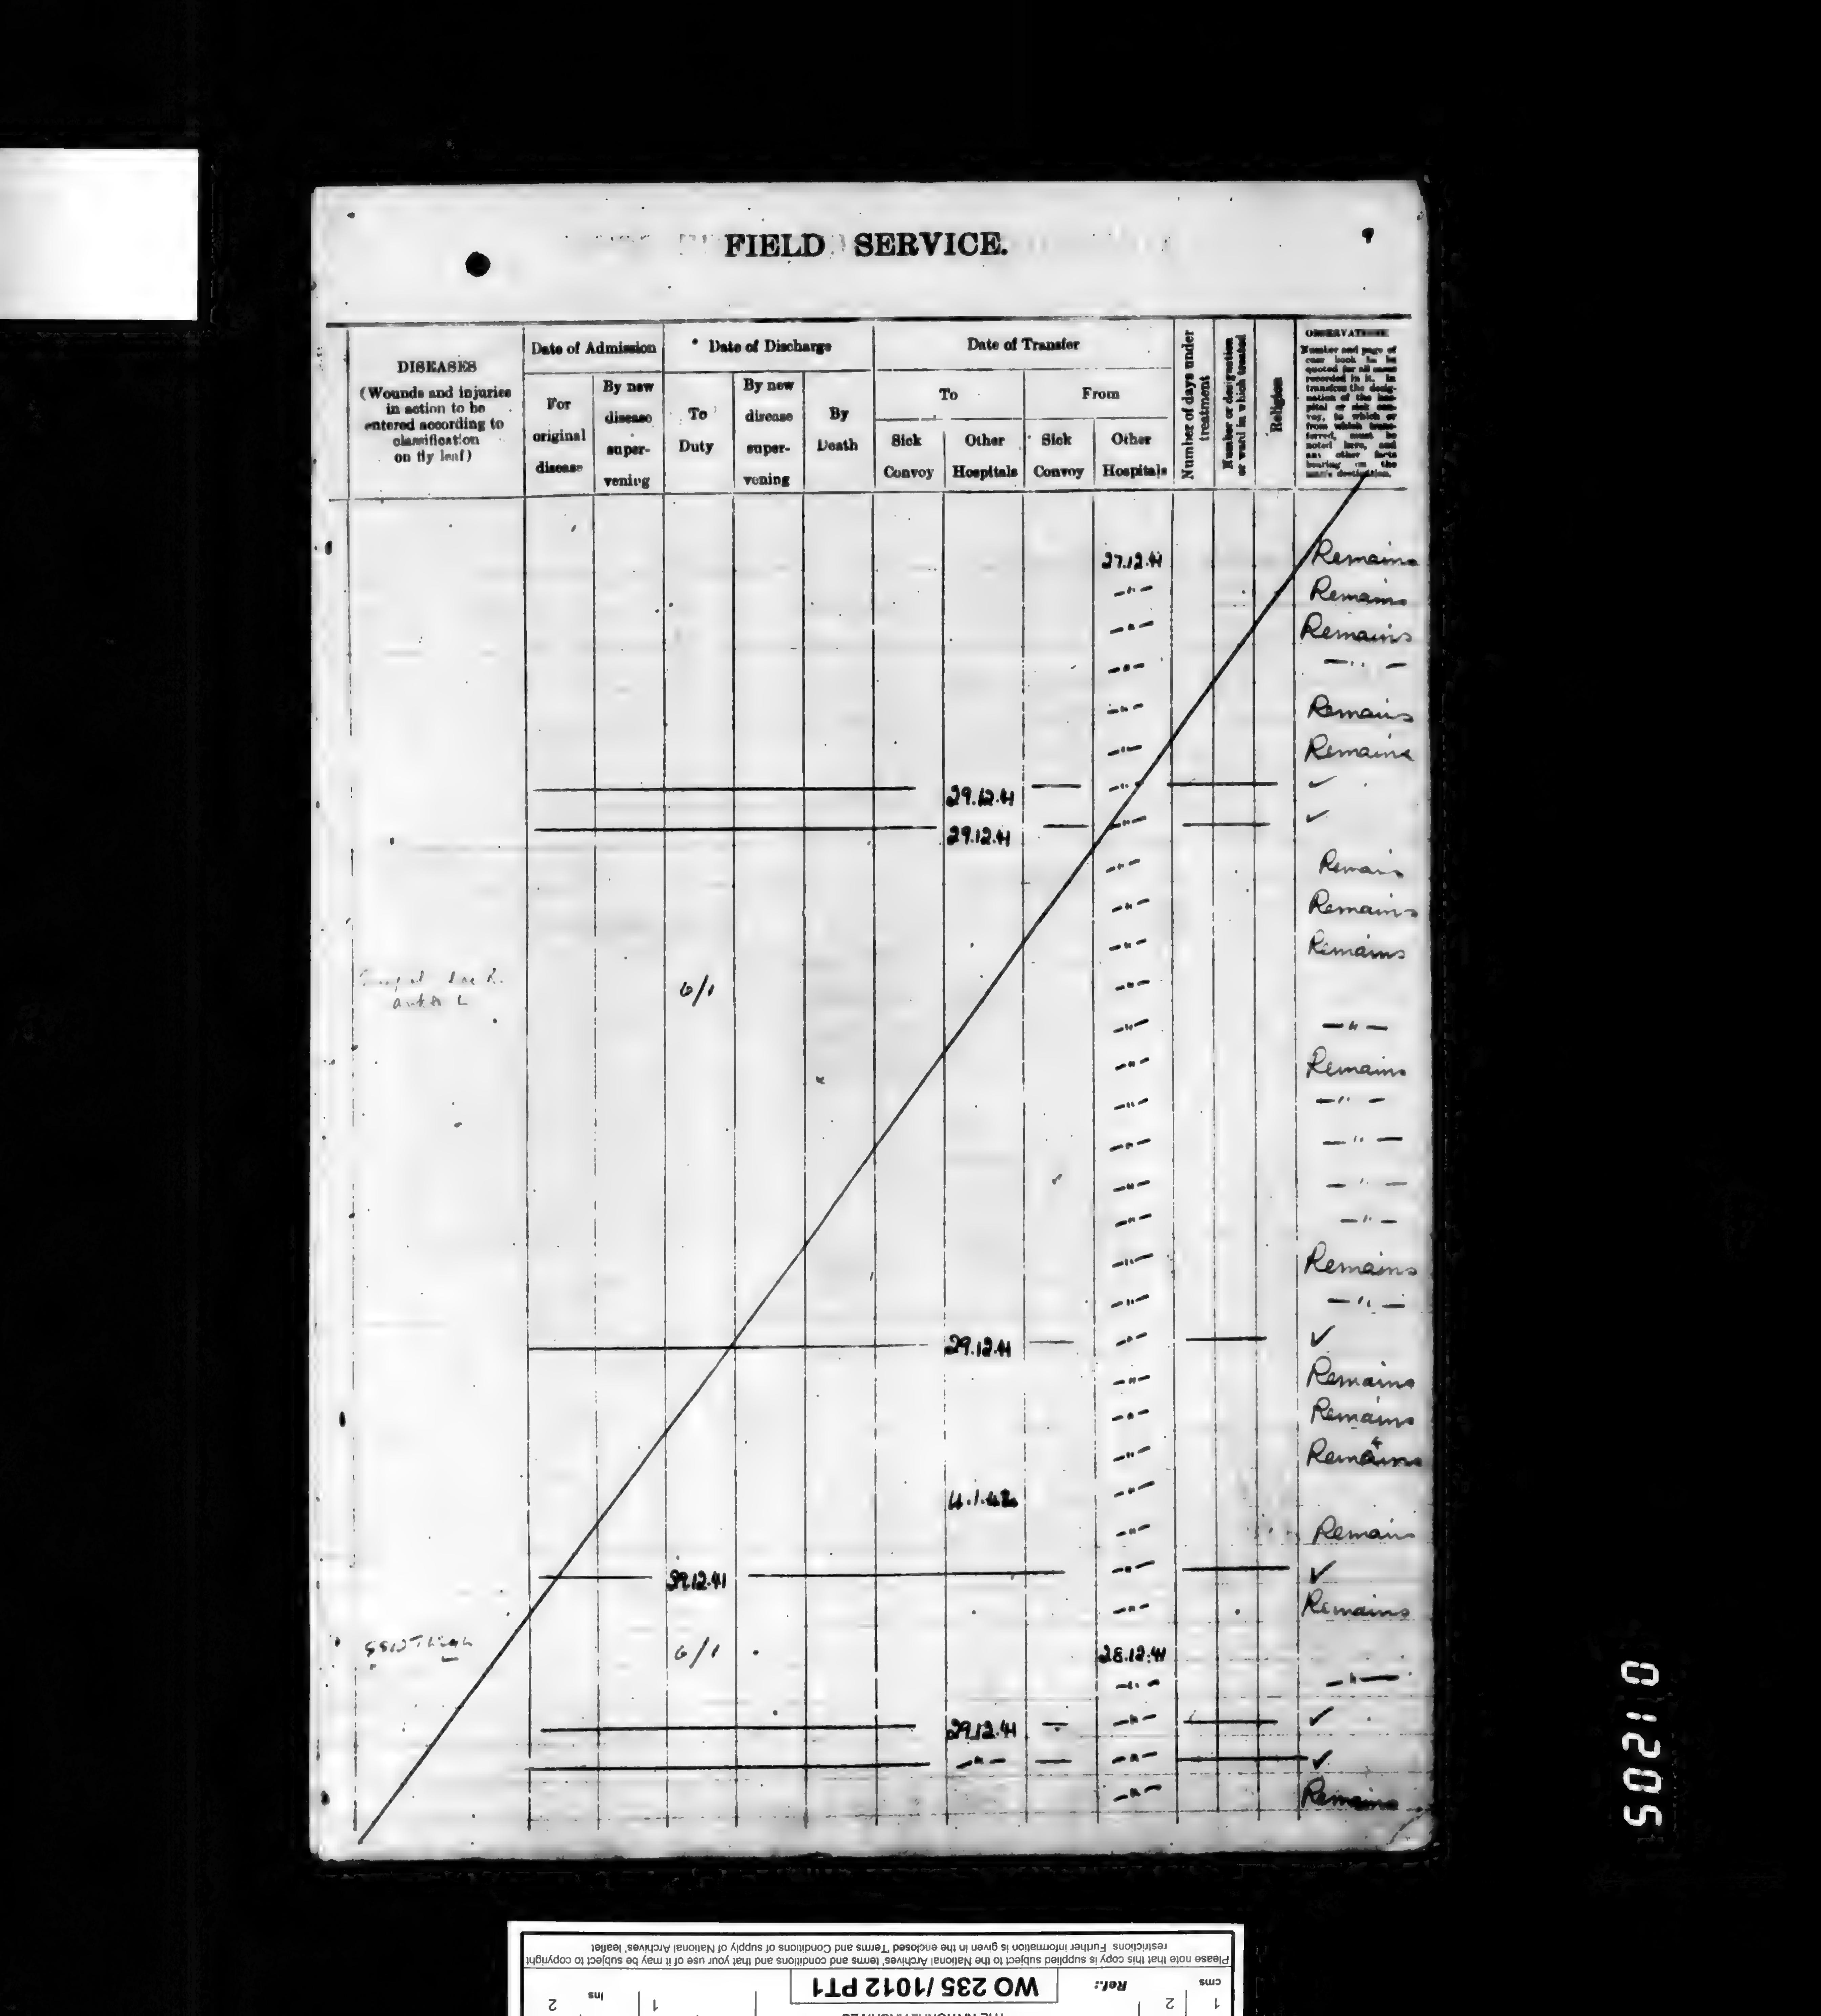 FIELD SERVICE.
DISEASES
(Wounds and injuries
in action to be
entered according to
classification
on fly leaf)
Date of Admission
For
original
disease
By new
disease
super-
vening
* Date of Discharge
To
Duty
By new
disease
super-
vening
By
Death
Date of Transfer
To
Sick
Convoy
Other
Hospitals
From
Sick
Convoy
Other
Hospitals
Number of days under
treatment
Number or designation
or ward in which treated
Religion
OBSERVATIONS
Number and page of
case book to be
quoted for all cases
recorded in it. In
transfers the desig-
nation of the hos-
pital or sick con-
voy, to which or
from which trans-
ferred, must be
noted here, and
any other facts
bearing on the
man's destination.
27.12.41 Remains
—"— Remains
—"— Remains
—"— —"—
—"— Remains
—"— Remains
29.12.41 — —"— ✓
29.12.41 — —"— ✓
—"— Remains
—"— Remains
—"— Remains
6/1 —"—
L
—"— —"—
—"— Remains
—"— —"—
—"— —"—
—"— —"—
—"— —"—
—"— Remains
—"— —"—
29.12.41 — —"— ✓
—"— Remains
—"— Remains
—"— Remains
4.1.42 —"—
—"— Remains
29.12.41 —"— ✓
—"— Remains
GSW Thigh 6/1 28.12.41
—"— —"—
29.12.41 — —"— ✓
—"— — —"— ✓
—"— Remains
01205
Please note that this copy is supplied subject to the National Archives' terms and conditions and that your use of it may be subject to copyright
restrictions Further information is given in the enclosed 'Terms and Conditions of supply of National Archives' leaflet
cms 1 2
Ref.: WO 235 /1012 PT1
ins 1 2